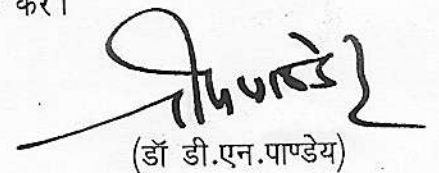 करें।
(डॉ डी.एन.पाण्डेय)